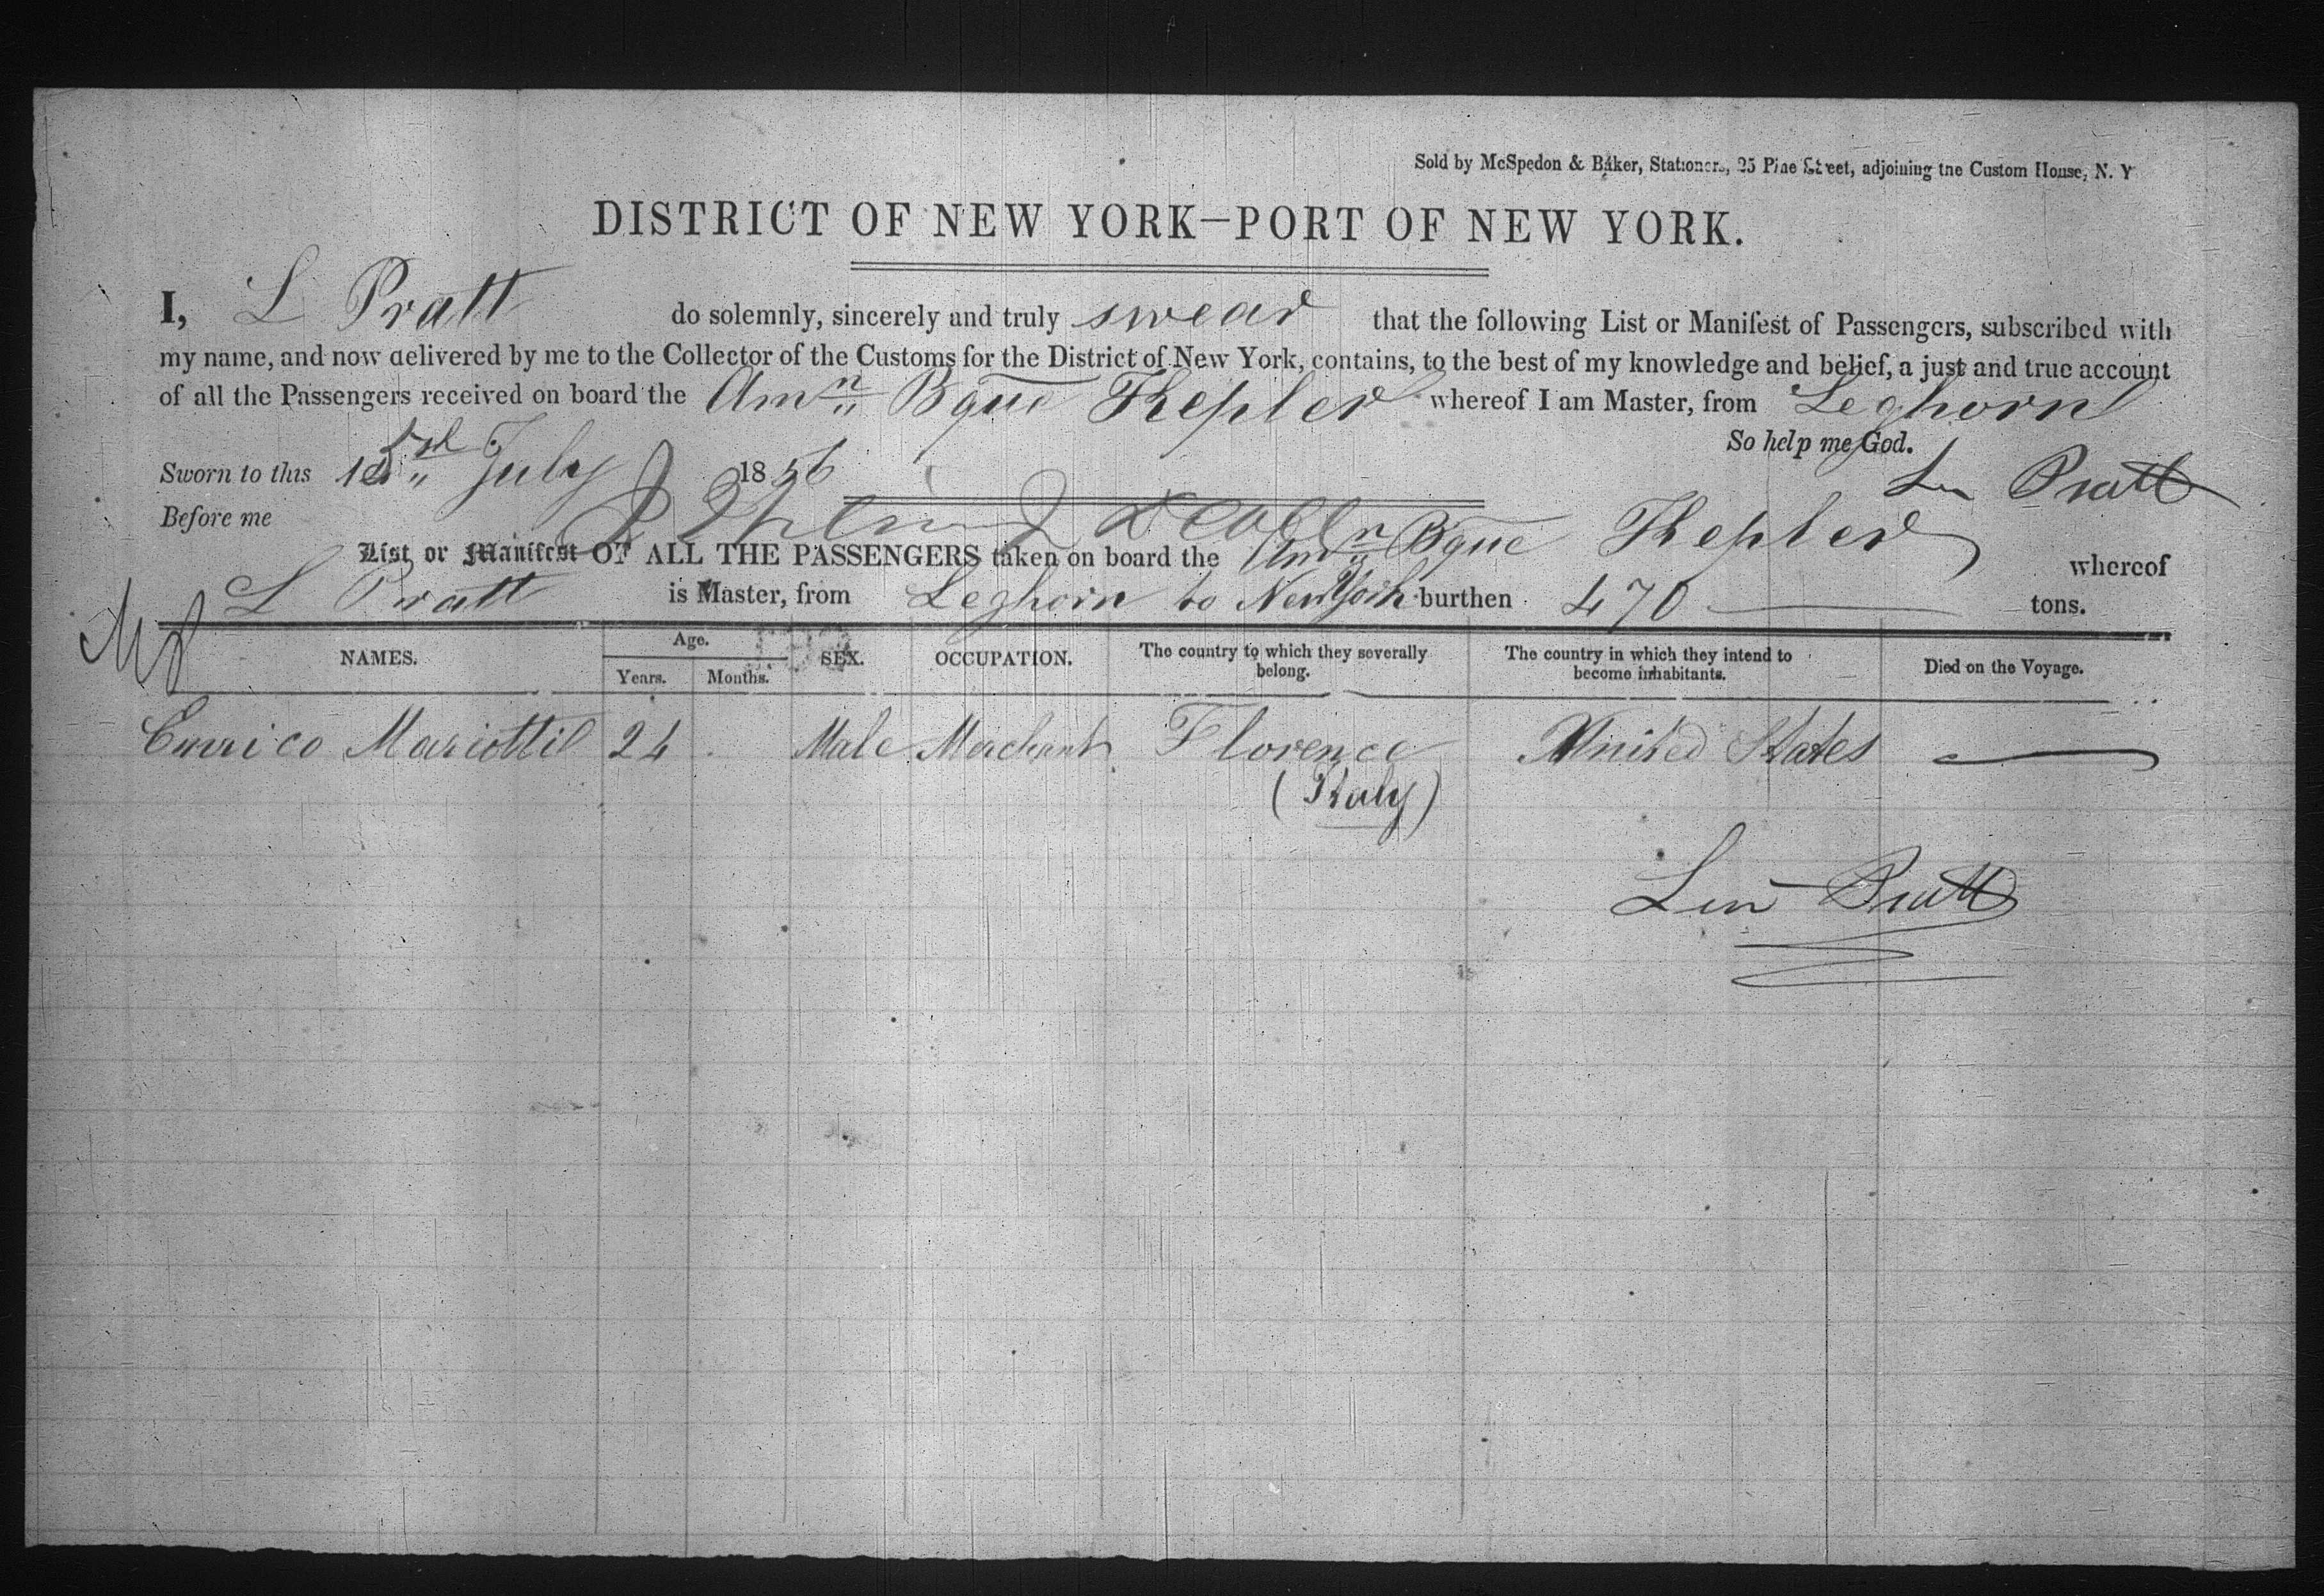 Sold by McSpedon & Baker, Stationers, 25 Pine Street, adjoining the Custom House, N. Y
DISTRICT OF NEW YORK—PORT OF NEW YORK.
I, L Pratt do solemnly, sincerely and truly swear that the following List or Manifest of Passengers, subscribed with
my name, and now delivered by me to the Collector of the Customs for the District of New York, contains, to the best of my knowledge and belief, a just and true account
of all the Passengers received on board the Amn Bque Kepler whereof I am Master, from Leghorn
So help me God.
Sworn to this July 1856 Pratt
Before me
List or Manifest OF ALL THE PASSENGERS taken on board the Amn Bque Kepler whereof
L Pratt is Master, from Leghorn to New York burthen 470 tons.
NAMES. Age. Years. Months. SEX. OCCUPATION. The country to which they severally belong. The country in which they intend to become inhabitants. Died on the Voyage.
Enrico Mariotti 24 Male Merchant Florence United States
(Italy)
Pratt